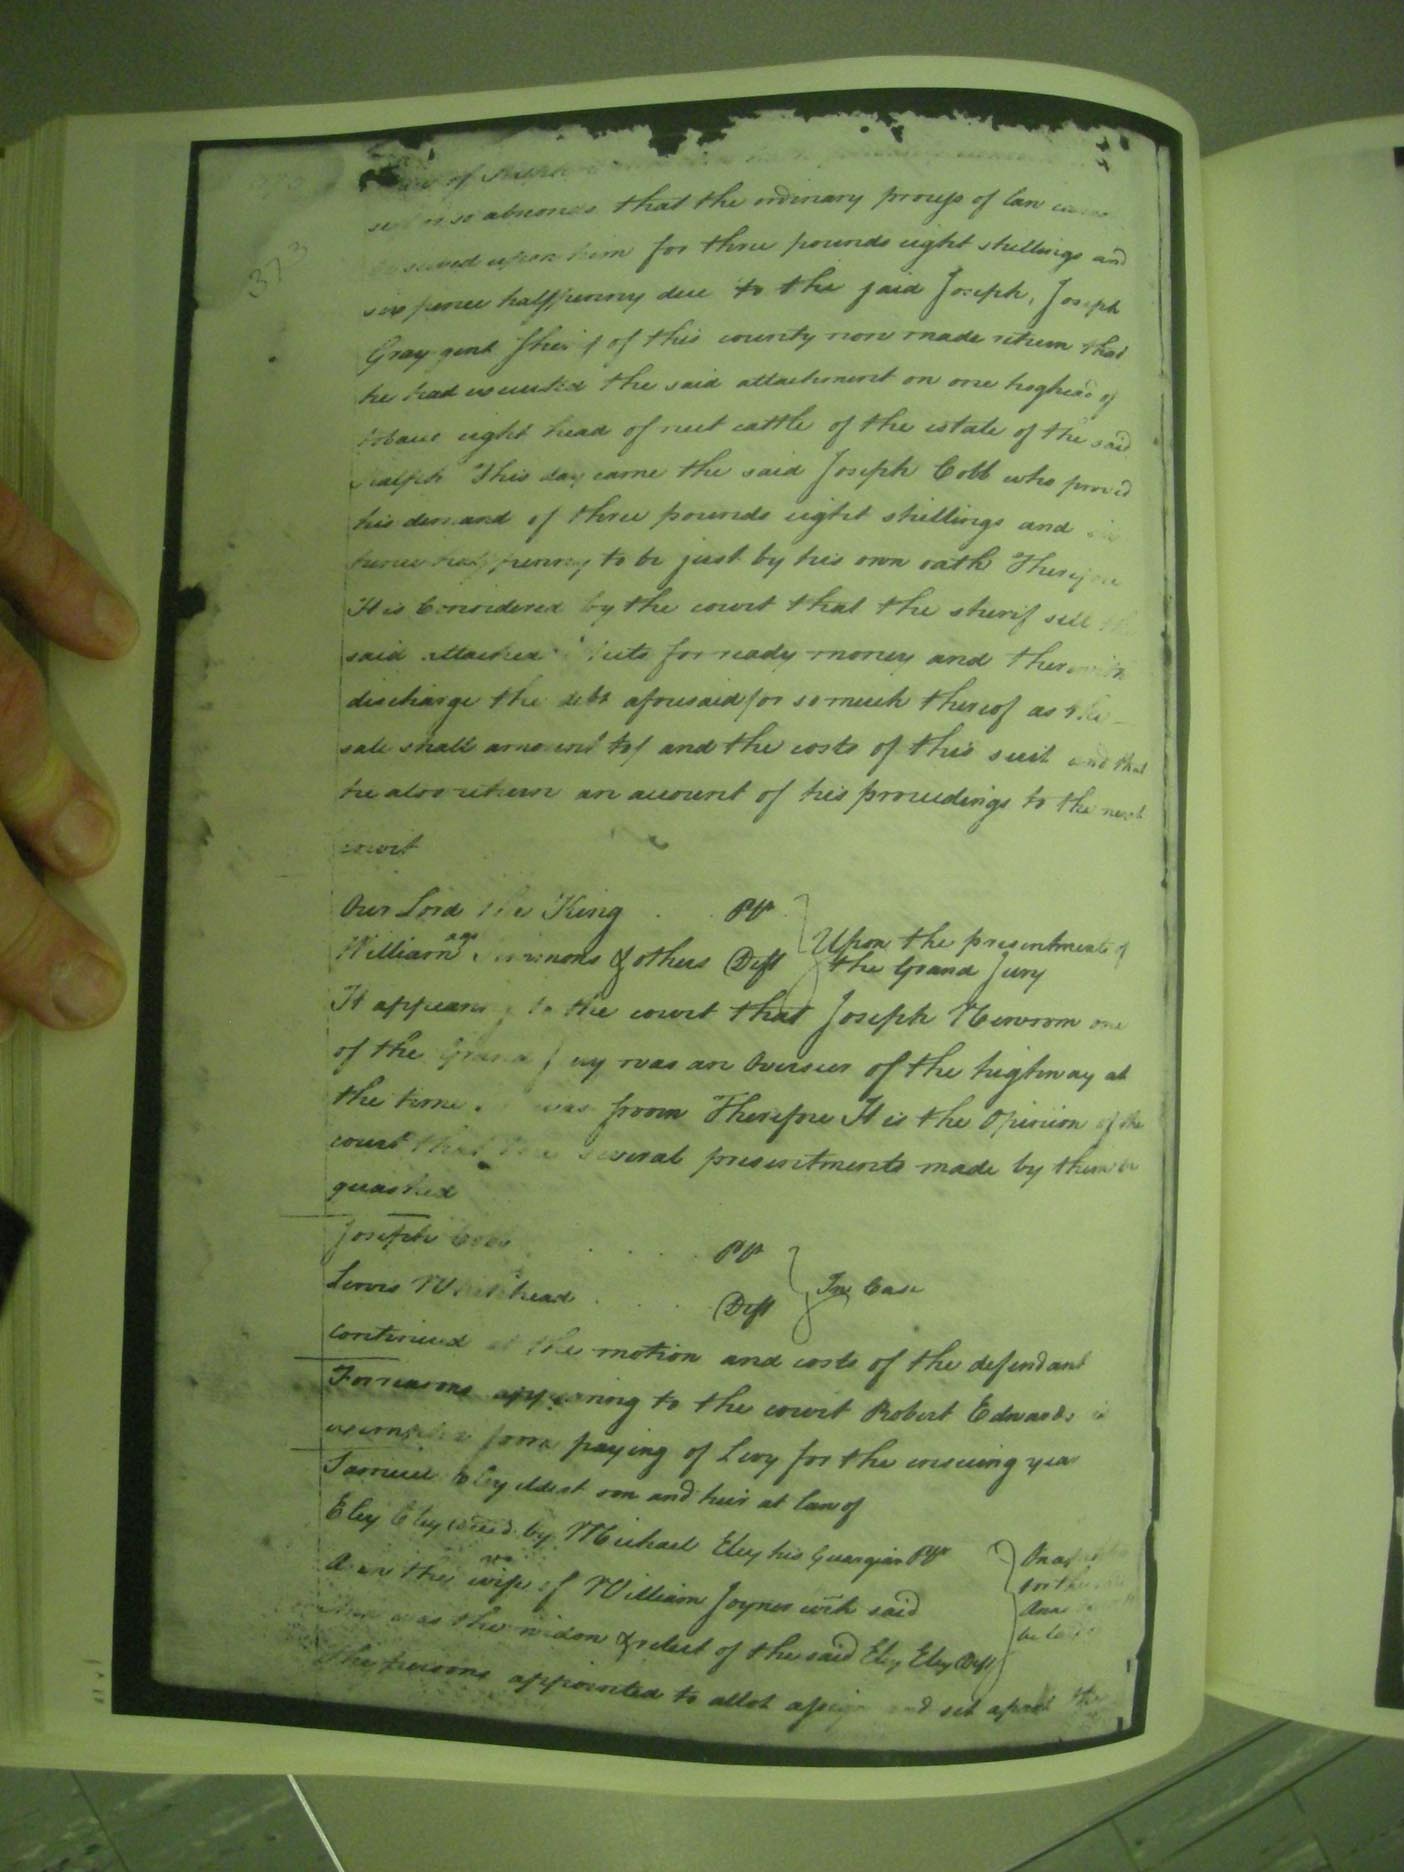 373
of Joseph
so absconds that the ordinary process of law
served upon him for three pounds eight shillings and
six pence halfpenny due to the said Joseph, Joseph
Gray gent Sherif of this county now made return that
he had executed the said attachment on one hoghead of
tobacco eight head of neet cattle of the estate of the said
Ralph This day came the said Joseph Cobb who proved
his demand of three pounds eight shillings and six
pence halfpenny to be just by his own oath Therefore
It is Considered by the court that the sherif sell the
said attached for ready money and therewith
discharge the debt aforesaid for so much thereof as the
sale shall amount to) and the costs of this suit and that
he also return an account of his proceedings to the next
court
Our Lord the King Plt
William Simmons & others Deft
ags
Upon the presentments of
the Grand Jury
It appearing to the court that Joseph Newsom one
of the Grand Jury was an Overseer of the highway at
the time was sworn Therefore It is the Opinion of the
court that the several presentments made by them be
quashed
Joseph Plt
Lewis Whitehead Deft
In Case
continued at the motion and costs of the defendant
For reasons appearing to the court Robert Edwards is
from paying of Levy for the ensuing year
Samuel Eley eldest son and heir at law of
Eley Eley deced by Michael Eley his Guardian Plt
vs
the wife of William Joyner wch said
was the widow & relect of the said Eley Eley Deft
The persons appointed to allot assign and set apart the